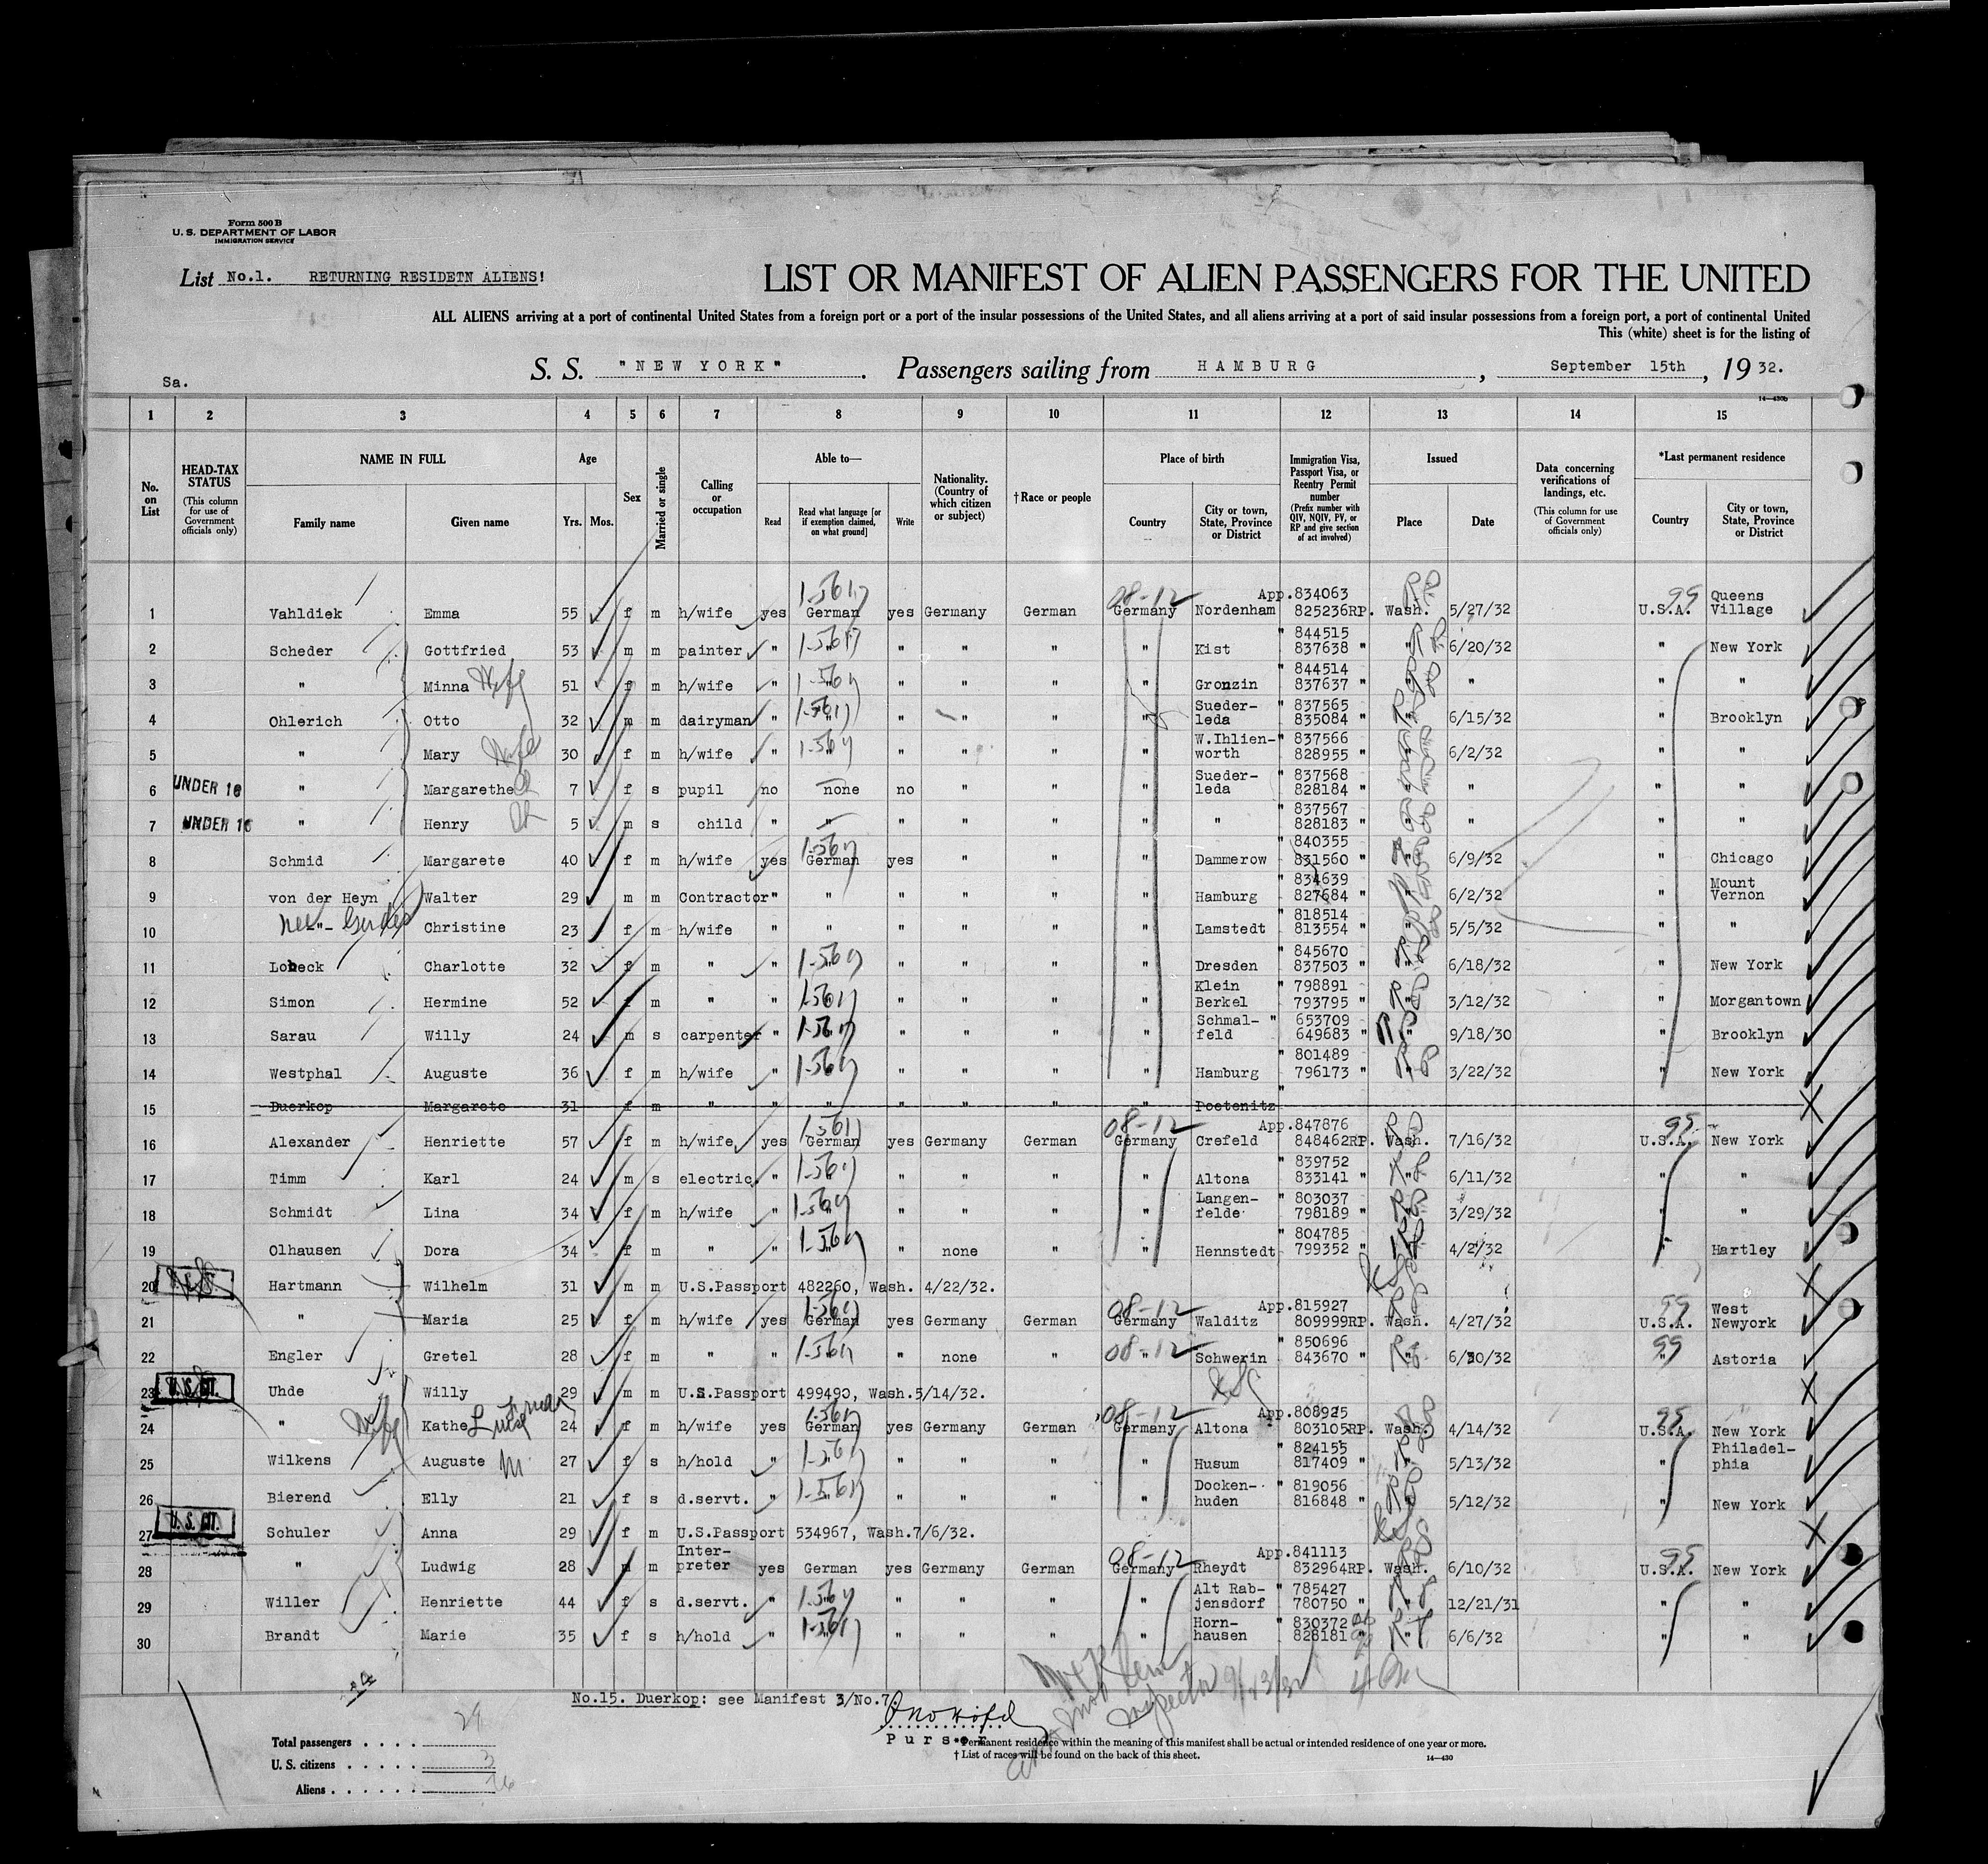 Form 500 B
U. S. DEPARTMENT OF LABOR
IMMIGRATION SERVICE
List No.1. RETURNING RESIDETN ALIENS!
LIST OR MANIFEST OF ALIEN PASSENGERS FOR THE UNITED
ALL ALIENS arriving at a port of continental United States from a foreign port or a port of the insular possessions of the United States, and all aliens arriving at a port of said insular possessions from a foreign port, a port of continental United
This (white) sheet is for the listing of
Sa.
S. S. "NEW YORK". Passengers sailing from HAMBURG, September 15th, 19 32.
14—430b
1 2 3 4 5 6 7 8 9 10 11 12 13 14 15
No. on List
HEAD-TAX STATUS (This column for use of Government officials only)
NAME IN FULL
Family name
Given name
Age
Yrs. Mos.
Sex
Married or single
Calling or occupation
Able to—
Read
Read what language [or if exemption claimed, on what ground]
Write
Nationality. (Country of which citizen or subject)
† Race or people
Place of birth
Country
City or town, State, Province or District
Immigration Visa, Passport Visa, or Reentry Permit number (Prefix number with QIV, NQIV, PV, or RP and give section of act involved)
Issued
Place
Date
Data concerning verifications of landings, etc. (This column for use of Government officials only)
*Last permanent residence
Country
City or town, State, Province or District
1 Vahldiek Emma 55 f m h/wife yes German yes Germany German 08-12 Germany Nordenham App.834063 825236RP. Wash. 5/27/32 99 U.S.A. Queens Village
2 Scheder Gottfried 53 m m painter " " " " " Kist " 844515 837638 " " 6/20/32 " New York
3 " Minna Wife 51 f m h/wife " " " " " " Gronzin " 844514 837637 " " " " "
4 Ohlerich Otto 32 m m dairyman " " " " " " Suederleda " 837565 835084 " " 6/15/32 " Brooklyn
5 " Mary Wife 30 f m h/wife " " " " " " W.Ihlien-worth " 837566 828955 " " 6/2/32 " "
6 UNDER 16 " Margarethe 7 f s pupil no none no " " " Sueder-leda " 837568 828184 " " " " "
7 UNDER 16 " Henry 5 m s child " " " " " " " " 837567 828183 " " " " "
8 Schmid Margarete 40 f m h/wife yes German yes " " " Dammerow " 840355 831560 " " 6/9/32 " Chicago
9 von der Heyn Walter 29 m m Contractor " " " " " " Hamburg " 834639 827684 " " 6/2/32 " Mount Vernon
10 -"- Christine 23 f m h/wife " " " " " " Lamstedt " 818514 813554 " " 5/5/32 " "
11 Lobeck Charlotte 32 f m " " " " " " " Dresden " 845670 837503 " " 6/18/32 " New York
12 Simon Hermine 52 f m " " " " " " " Klein Berkel " 798891 793795 " " 3/12/32 " Morgantown
13 Sarau Willy 24 m s carpenter " " " " " " Schmal-feld " 653709 649683 " " 9/18/30 " Brooklyn
14 Westphal Auguste 36 f m h/wife " " " " " " Hamburg " 801489 796173 " " 3/22/32 " New York
15 Duerkop Margarete 31 f m " " " " " " " Poetenitz "
16 Alexander Henriette 57 f m h/wife yes German yes Germany German 08-12 Germany Crefeld App.847876 848462RP. Wash. 7/16/32 U.S.A. New York
17 Timm Karl 24 m s electric. " " " " " " Altona " 839752 833141 " " 6/11/32 " "
18 Schmidt Lina 34 f m h/wife " " " " " " Langen-felde " 803037 798189 " " 3/29/32 " "
19 Olhausen Dora 34 f m " " " " none " " Hennstedt " 804785 799352 " " 4/2/32 " Hartley
20 Hartmann Wilhelm 31 m m U.S.Passport 482260, Wash. 4/22/32.
21 " Maria 25 f m h/wife yes German yes Germany German 08-12 Germany Walditz App.815927 809999RP. Wash. 4/27/32 99 U.S.A. West Newyork
22 Engler Gretel 28 f m " " " " none " 08-12 " Schwerin " 850696 843670 " " 6/30/32 99 " Astoria
23 U. S. CIT. Uhde Willy 29 m m U.S.Passport 499490, Wash.5/14/32.
24 " Wife Kathe 24 f m h/wife yes German yes Germany German 08-12 Germany Altona App.808925 803105RP. Wash. 4/14/32 U.S.A. New York
25 Wilkens Auguste 27 f s h/hold " " " " " " Husum " 824155 817409 " " 5/13/32 " Philadel-phia
26 Bierend Elly 21 f s d.servt. " " " " " " Docken-huden " 819056 816848 " " 5/12/32 " New York
27 U. S. CIT. Schuler Anna 29 f m U.S.Passport 534967, Wash.7/6/32.
28 " Ludwig 28 m m Inter-preter yes German yes Germany German 08-12 Germany Rheydt App.841113 832964RP. Wash. 6/10/32 U.S.A. New York
29 Willer Henriette 44 f s d.servt. " " " " " " Alt Rab-jensdorf " 785427 780750 " " 12/21/31 " "
30 Brandt Marie 35 f s h/hold " " " " " " Horn-hausen " 830372 828181 " " 6/6/32 " "
No.15. Duerkop: see Manifest 3/No.7.
Purser
Inspector
Total passengers . . . . 29
U. S. citizens . . . . . 3
Aliens . . . . . . 26
*Permanent residence within the meaning of this manifest shall be actual or intended residence of one year or more.
† List of races will be found on the back of this sheet.
14—430